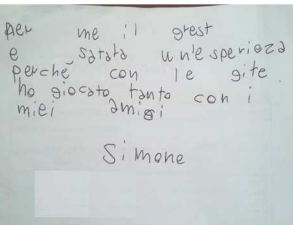 per me il grest
e satata un'esperieza
perché con le gite
ho giocato tanto con i
miei amisi
Simone